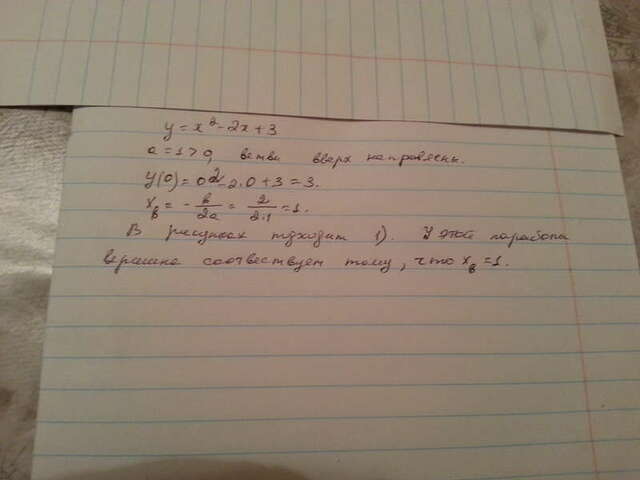 y = x² - 2x + 3
a = 1 > 0, ветви вверх направлены.
y(0) = 0² - 2·0 + 3 = 3.
x_в = - b/2a = 2/2·1 = 1.
В рисунках подходит 1). У этой парабола
вершина соотвествует тому, что x_в = 1.